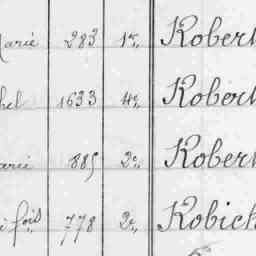 Marie 283 1r. Robert
hel 1633 4e. Robert
arie 885 2e. Robert
i fois 778 2e. Robich